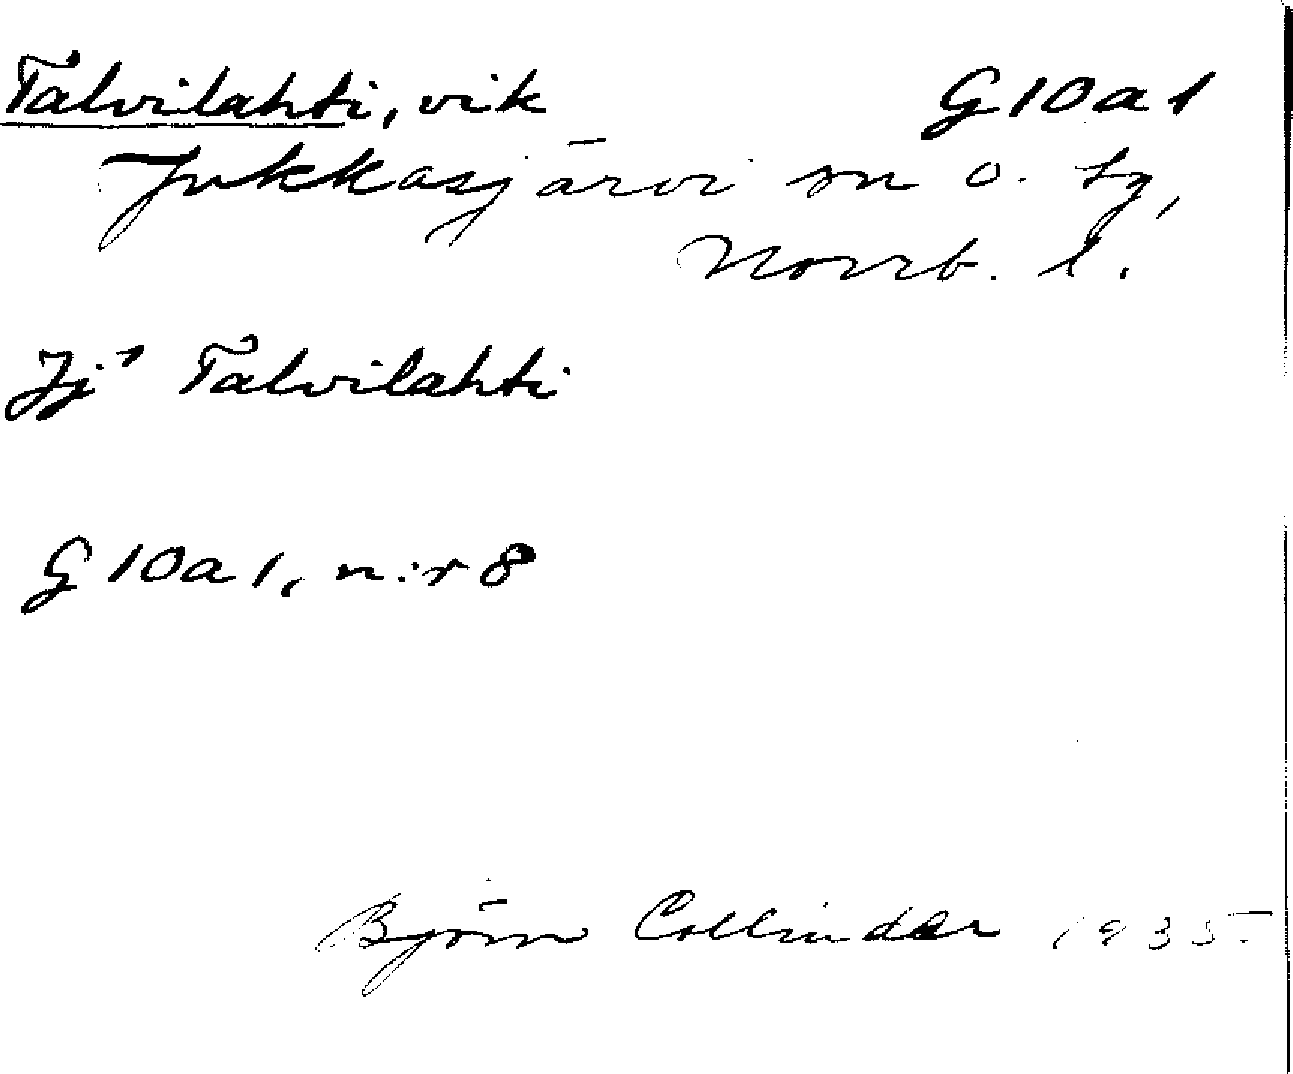 Talvilahti, vik G10a1
Jukkasjärvi sn o. tg,
Norrb. l.
Jj¹ Talvilahti
G10a1, n:r 8
Björn Collinder 1935.